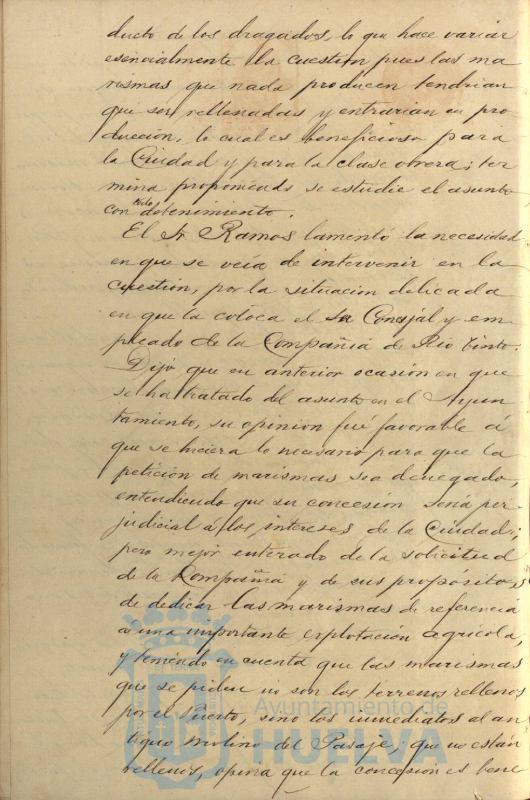 ducto de los dragados, lo que hace variar
esencialmente la cuestion pues las ma
rismas que nada producen tendrian
que ser rellenadas y entrarian en pro
ducción, lo cual es beneficioso para
la Ciudad y para la clase obrera; ter
mina proponiendo se estudie el asunto
con todo detenimiento.
El Sr Ramos lamentó la necesidad
en que se veía de intervenir en la
cuestion, por la situacion delicada
en que la coloca el ser Concejál y em
pleado de la Compañia de Rio Tinto.
Dijo que en anterior ocasión en que
se ha tratado del asunto en el Ayun
tamiento, su opinion fué favorable á
que se hiciera lo necesario para que la
petición de marismas sea denegado,
entendiendo que su concesion seria per-
judicial á los intereses de la Ciudad;
pero mejor enterado de la solicitud
de la Compañia y de sus propósitos
de dedicar las marismas de referencia
a una importante explotación agricola,
y teniendo en cuenta que las marismas
que se piden no son los terrenos rellenos
por el Puerto, sino los inmediatos al an
tiguo molino del Pasaje; que no están
rellenos, opina que la concesion es bene
Ayuntamiento de
HUELVA